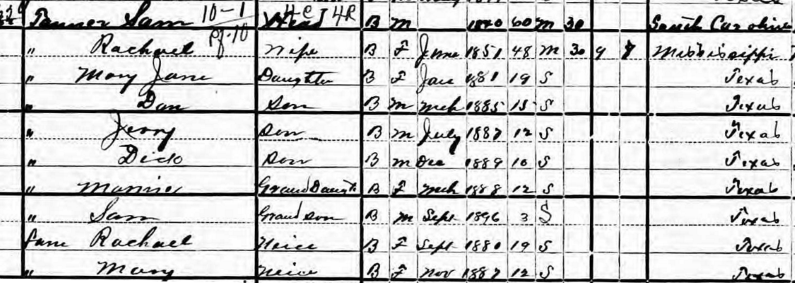 Tanner Sam 10-1 Head B M 1840 60 M 30 South Carolina
" Rachael Wife B F June 1851 48 M 30 9 7 Mississippi
" Mary Jane Daughter B F Jan 1881 19 S Texas
" Dan Son B M Mch 1885 15 S Texas
" Jerry Son B M July 1887 12 S Texas
" Dick Son B M Dec 1889 10 S Texas
" Mamie Grand Daught B F Mch 1888 12 S Texas
" Sam Grand son B M Sept 1896 3 S Texas
Lane Rachael Neice B F Sept 1880 19 S Texas
" Mary Neice B F Nov 1887 12 S Texas